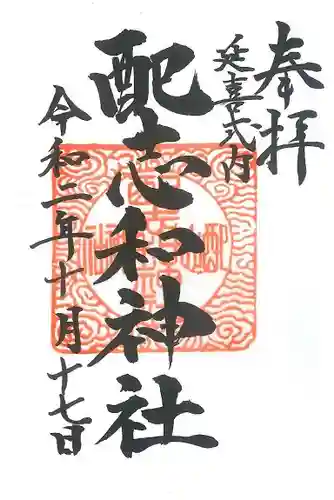 奉拝
延喜式内
配志和神社
令和二年十月十七日